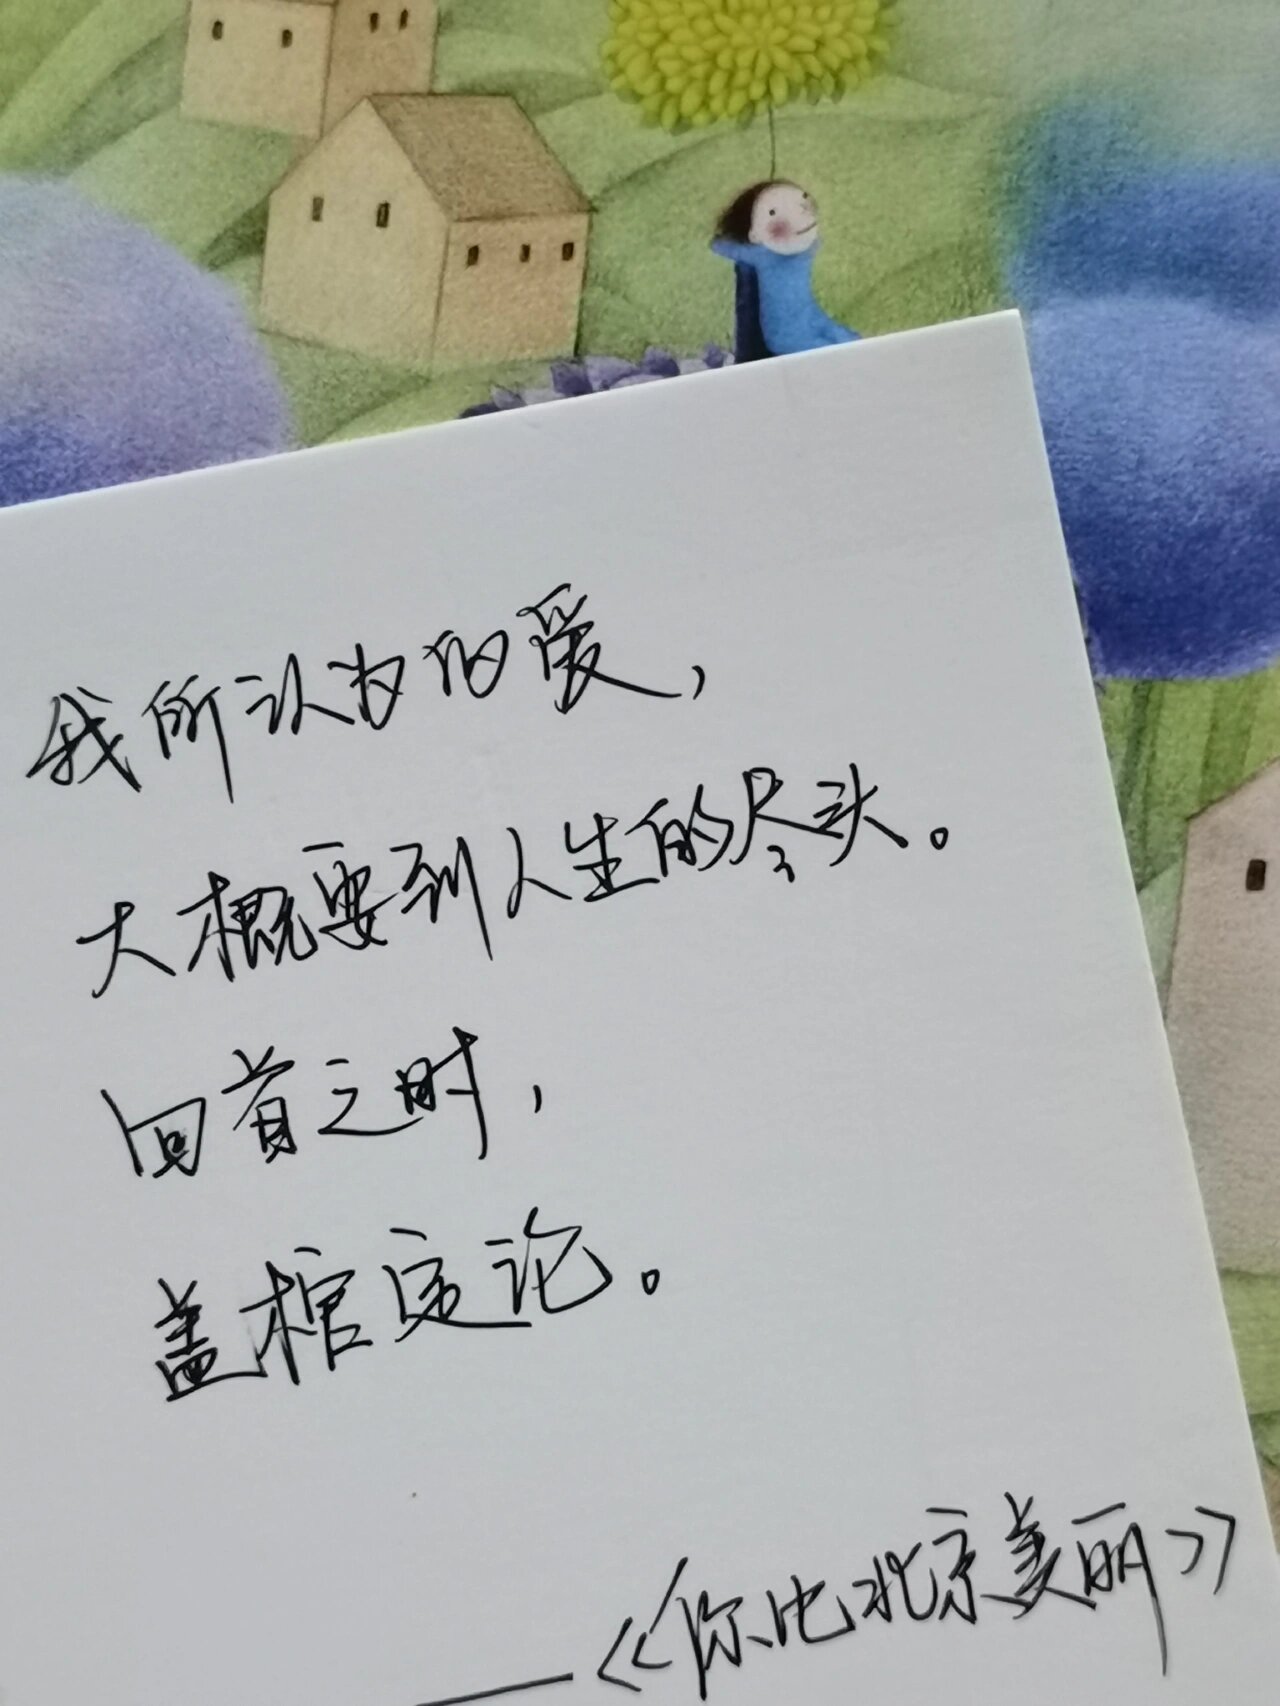 我所认为的爱，
大概要到人生的尽头。
回首之时，
盖棺定论。
——《你比北京美丽》